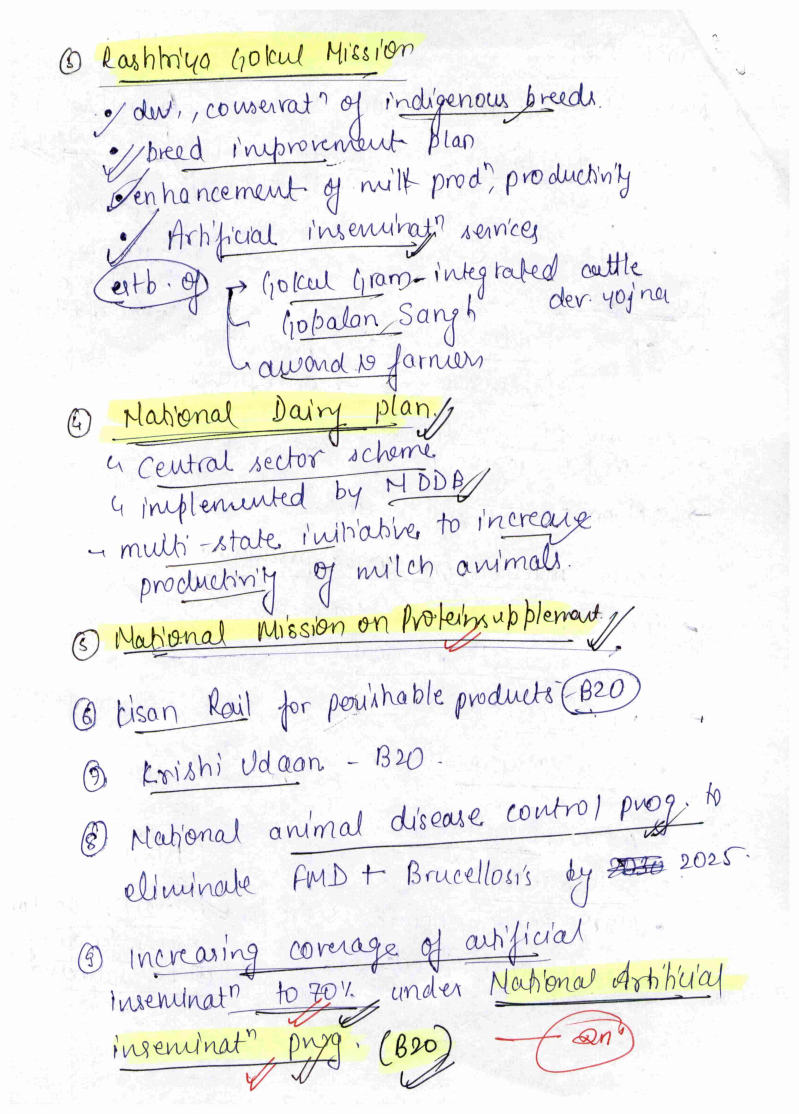 ③ Rashtriya Gokul Mission
• dev., conservatⁿ of indigenous breeds.
• breed improvement plan
• enhancement of milk prodⁿ, productivity
• Artificial inseminatⁿ services
estb. of → Gokul Gram - integrated cattle
dev. yojna
Gopalan Sangh
award to farmers
④ National Dairy plan.
↳ Central sector scheme
↳ implemented by NDDB
↳ multi-state initiative to increase
productivity of milch animals.
⑤ National Mission on Protein supplement
⑥ Kisan Rail for perishable products - B20
⑦ Krishi Udaan - B20.
⑧ National animal disease control prog. to
eliminate FMD + Brucellosis by 2030 2025.
⑨ Increasing coverage of artificial
inseminatⁿ to 70% under National Artificial
inseminatⁿ prog. (B20) — Qnˢ